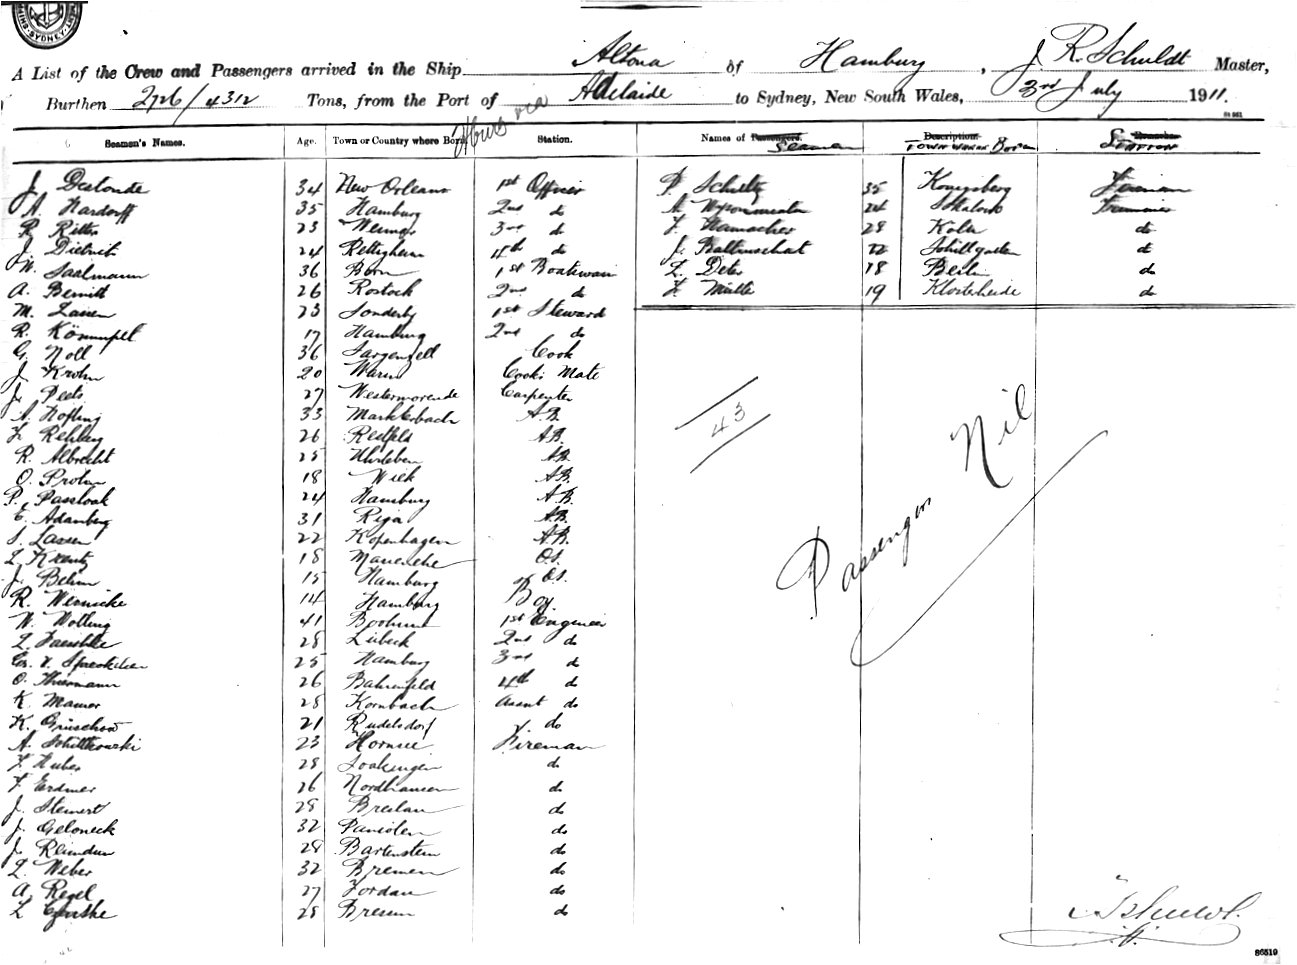 SYDNEY
A List of the Crew and Passengers arrived in the Ship Altona of Hamburg, J. R. Schuldt Master,
Burthen 2726/4312 Tons, from the Port of Adelaide to Sydney, New South Wales, 3rd July 1911.
via
Seamen's Names. Age. Town or Country where Born. Station. Names of Passengers. Seamen Description. Town where Born Remarks. Station
J. Destonde 34 New Orleans 1st Officer
A. Hardorff 35 Hamburg 2nd do
R. Ritter 23 Weimar 3rd do
J. Dietrich 24 Rettigheim 4th do
W. Saalmann 36 Born 1st Boatswain
A. Berndt 26 Rostock 2nd do
M. 23 Sonderby 1st Steward
R. 17 Hamburg 2nd do
G. Noll 36 Sargenzell Cook
J. Krohn 20 Waren Cooks Mate
J. Peets 27 Carpenter
A. Hofling 33 A.B.
F. Rehberg 26 A.B.
R. Albrecht 25 A.B.
O. Prohn 18 Wiek A.B.
P. Passloak 24 Hamburg A.B.
E. Adamberg 31 Riga A.B.
J. Lassen 22 Kopenhagen A.B.
L. Krentz 18 O.S.
J. Behm 15 Hamburg O.S.
R. Wernicke 14 Hamburg Boy
W. Wolling 41 Bochum 1st Engineer
L. 28 Lubeck 2nd do
V. Spreckelsen 25 Hamburg 3rd do
O. Thiermann 26 Bahrenfeld 4th do
K. Maurer 28 Kornbach Assnt do
K. Gruschow 21 Rudelsdorf do
A. Schittkowski 23 Hornsee Fireman
F. Huber 28 do
F. Erdmer 26 Nordhausen do
J. Steinert 28 Breslau do
J. Geloneck 32 do
J. 28 Bartenstein do
L. Weber 32 Bremen do
A. Regel 27 Jordan do
L. 28 do
P. Schultz 35 Konigsberg Fireman
A. 24 Trimmer
F. Hamacher 28 Koln do
J. Battenschat 22 do
L. Deter 18 Berlin do
F. 19 Klosterheide do
43
Passengers Nil
86519